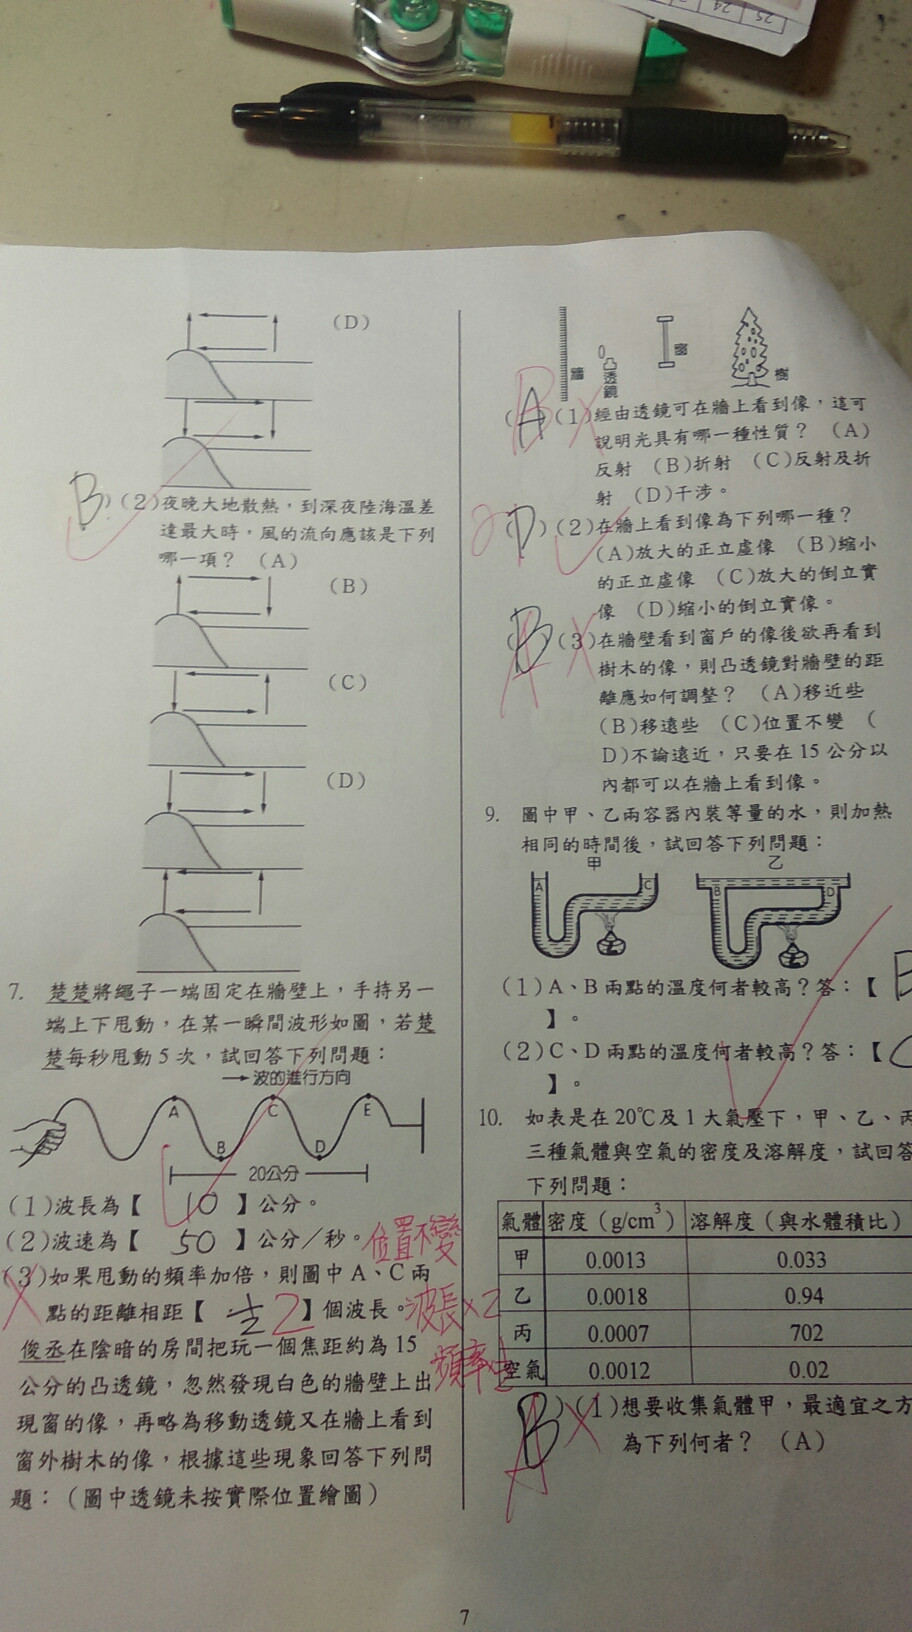 25
24
(D)
B (2)夜晚大地散熱，到深夜陸海溫差
達最大時，風的流向應該是下列
哪一項？ (A)
(B)
(C)
(D)
7. 楚楚將繩子一端固定在牆壁上，手持另一
端上下甩動，在某一瞬間波形如圖，若楚
楚每秒甩動5次，試回答下列問題：
→波的進行方向
A C E
B D
20公分
(1)波長為【 10 】公分。
(2)波速為【 50 】公分／秒。
位置不變
(3)如果甩動的頻率加倍，則圖中A、C兩
點的距離相距【 2 】個波長。
波長×2
俊丞在陰暗的房間把玩一個焦距約為15
頻率
公分的凸透鏡，忽然發現白色的牆壁上出
現窗的像，再略為移動透鏡又在牆上看到
窗外樹木的像，根據這些現象回答下列問
題：(圖中透鏡未按實際位置繪圖)
牆 透鏡 窗 樹
A B (1)經由透鏡可在牆上看到像，這可
說明光具有哪一種性質？ (A)
反射 (B)折射 (C)反射及折
射 (D)干涉。
D (2)在牆上看到像為下列哪一種？
(A)放大的正立虛像 (B)縮小
的正立虛像 (C)放大的倒立實
像 (D)縮小的倒立實像。
B A (3)在牆壁看到窗戶的像後欲再看到
樹木的像，則凸透鏡對牆壁的距
離應如何調整？ (A)移近些
(B)移遠些 (C)位置不變 (
D)不論遠近，只要在15公分以
內都可以在牆上看到像。
9. 圖中甲、乙兩容器內裝等量的水，則加熱
相同的時間後，試回答下列問題：
甲 乙
A C B D
(1)A、B兩點的溫度何者較高？答：【 B
】。
(2)C、D兩點的溫度何者較高？答：【
】。
10. 如表是在20℃及1大氣壓下，甲、乙、丙
三種氣體與空氣的密度及溶解度，試回答
下列問題：
氣體 密度(g/cm³) 溶解度(與水體積比)
甲 0.0013 0.033
乙 0.0018 0.94
丙 0.0007 702
空氣 0.0012 0.02
B A (1)想要收集氣體甲，最適宜之方
為下列何者？ (A)
7